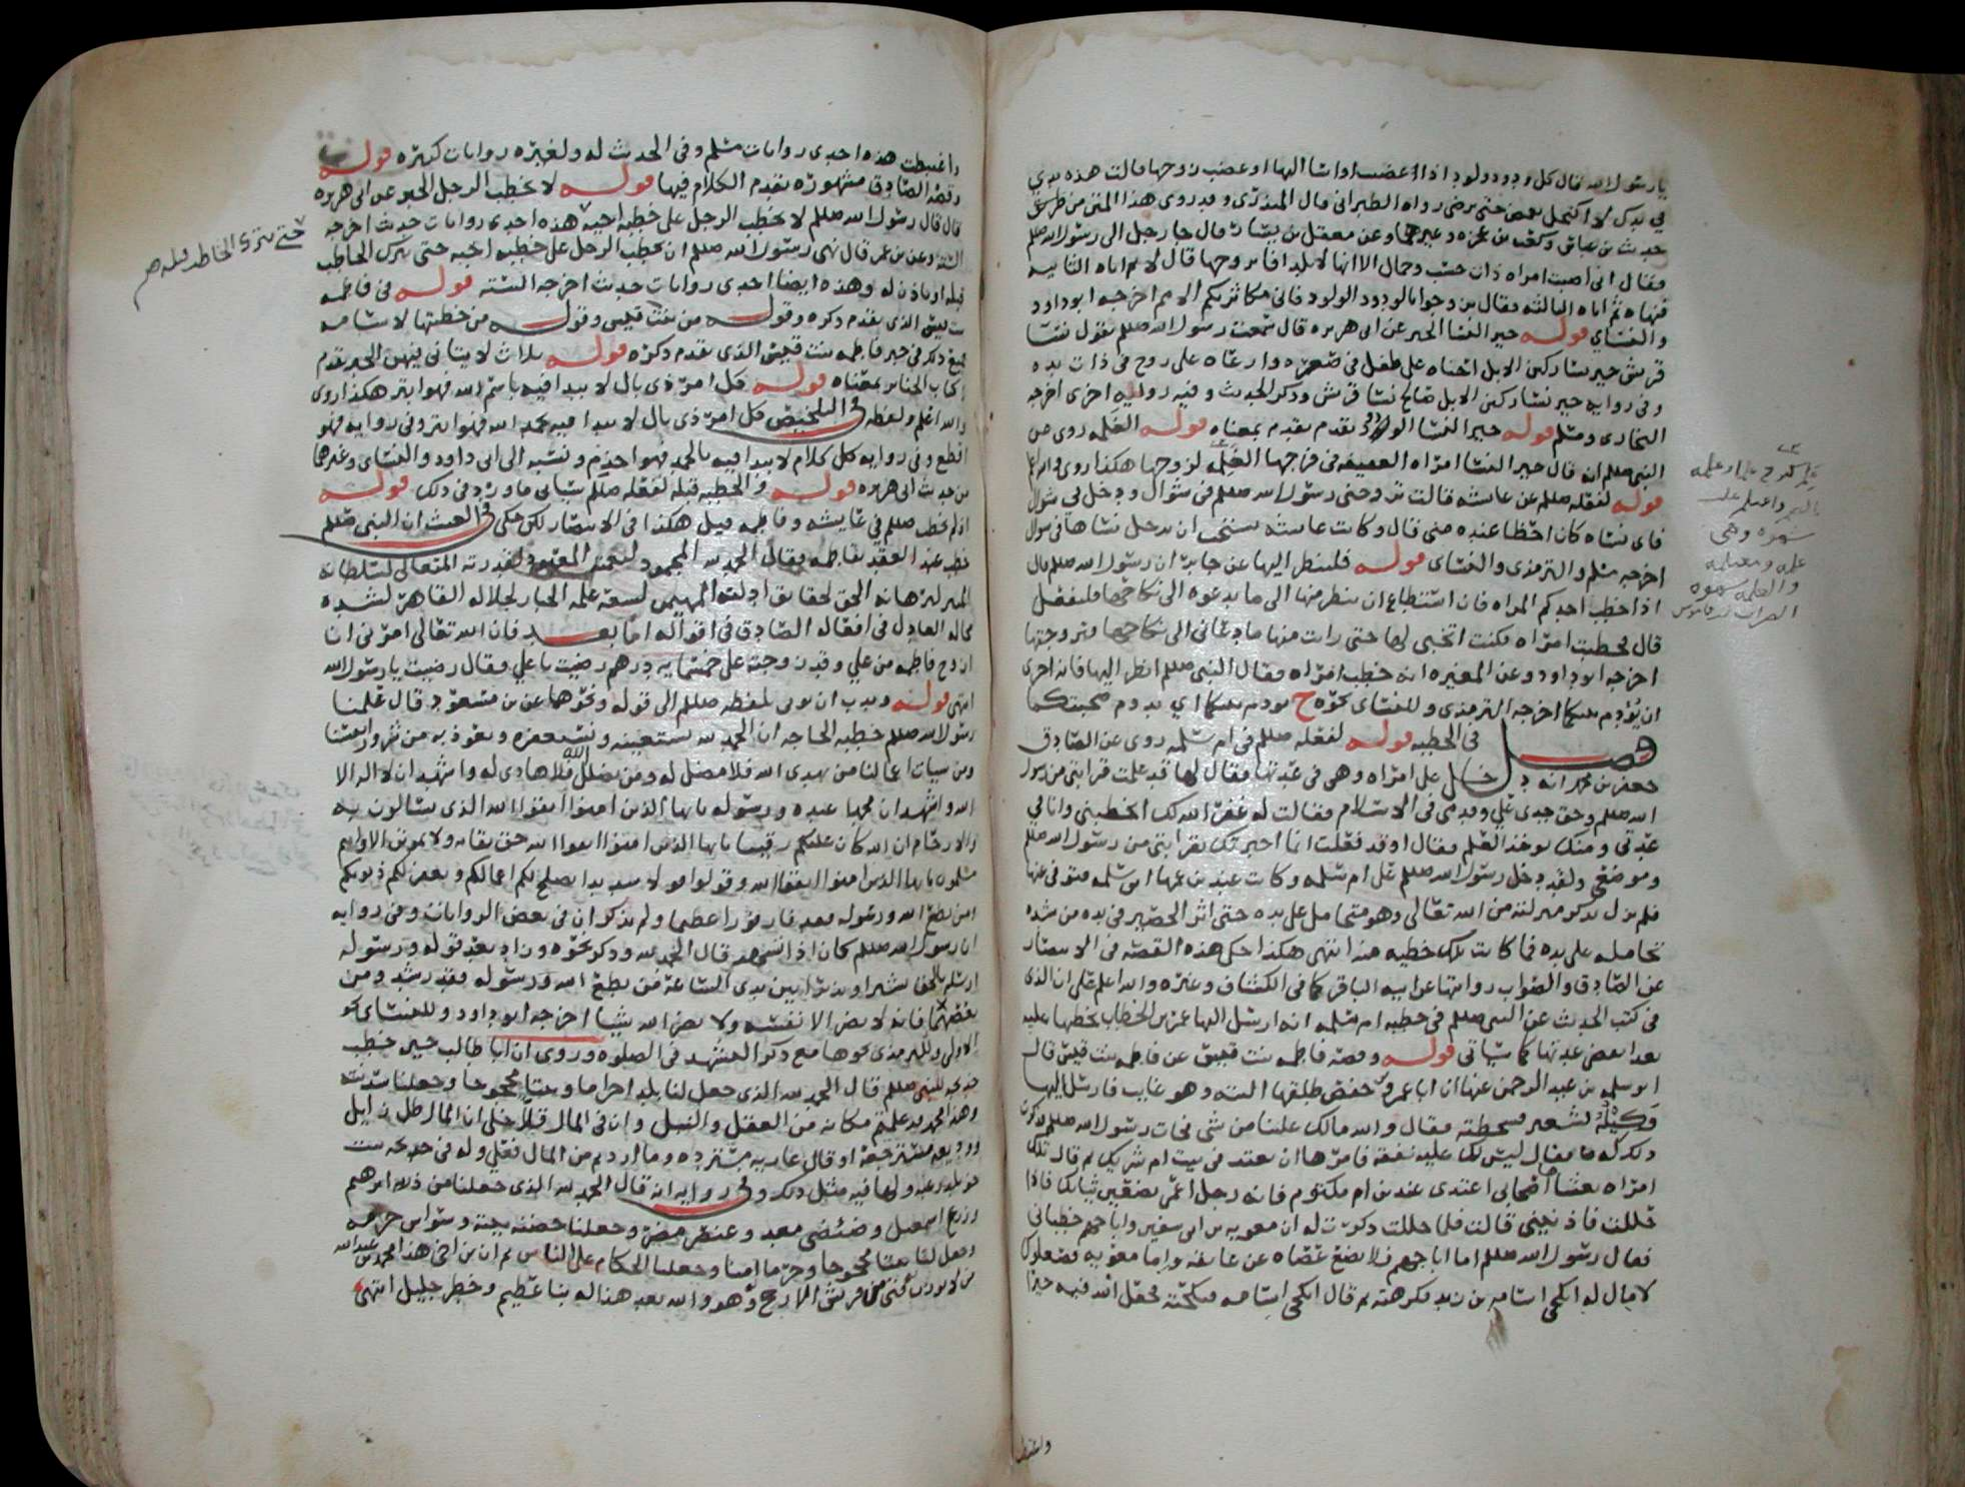 يا رسول الله قال كل ودود ولود اذا غضبت او اسا اليها او غضب زوجها قالت هذه يدي
في يدك لا اكتحل بغمض حتى ترضى رواه الطبراني قال المنذري وقد روى هذا المتن من طرق
حديث بن عباس وكعب بن عجره وغيرهما وعن معقل بن يسار قال جا رجل الى رسول الله صللم
فقال اني اصبت امراه ذات حسب وجمال الا انها لا تلد افاتزوجها قال لا ثم اتاه الثانيه
فنهاه ثم اتاه الثالثه فقال تزوجوا الودود الولود فاني مكاثر بكم الامم اخرجه ابو داود
والنسائي قوله خير النسا الخبر عن ابي هريره قال سمعت رسول الله صللم يقول نسا
قريش خير نسا ركبن الابل احناه على طفل في صغره وارعاه على زوج في ذات يده
وفي روايه خير نسا ركبن الابل صالح نسا قريش وذكر الحديث وفيه روايه اخرى اخرجه
البخاري ومسلم قوله خير النسا الولود تقدم بمعناه قوله الغلمه روى عن
النبي صللم انه قال خير النسا امراه العفيفه في فرجها الغلمه لزوجها هكذا روى والله اعلم
قوله لفعله صللم عن عائشه قالت تزوجني رسول الله صللم في شوال ودخل بي شوال
فاي نساه كان احظا عنده مني قال وكانت عائشه تستحب ان يدخل نساها في شوال
اخرجه مسلم والترمذي والنسائي قوله فلينظر اليها عن جابر ان رسول الله صللم قال
اذا خطب احدكم المراه فان استطاع ان ينظر منها الى ما يدعوه الى نكاحها فليفعل
قال فخطبت امراه فكنت اتخبى لها حتى رايت منها ما دعاني الى نكاحها وتزوجتها
اخرجه ابو داود وعن المغيره انه خطب امراه فقال النبي صللم انظر اليها فانه احرى
ان يؤدم بينكما اخرجه الترمذي وللنسائي نحوه ح يؤدم بينكما اي يدوم صحبتكما
فصل في الخطبه قوله لفعله صللم في ام سلمه روى عن الصادق
جعفر بن محمد انه دخل على امراه وهي في عدتها فقال لها قد علمت قرابتي من رسول
الله صللم وحق جدي علي وقدمي في الاسلام فقالت له غفر الله لك اتخطبني وانا في
عدتي ومنك يوخذ العلم فقال اوقد فعلت انما اخبرتك بقرابتي من رسول الله صللم
وموضعي ولقد دخل رسول الله صللم على ام سلمه وكانت عند بن عمها ابي سلمه فتوفي عنها
فلم يزل يذكر منزلته من الله تعالى وهو متحامل على يده حتى اثر الحصير في يده من شده
تحامله على يده فما كانت تلك خطبه منه انتهى هكذا حكى هذه القصه في الانتصار
عن الصادق والصواب روايتها عن ابيه الباقر كما في الكشاف وغيره والله اعلم على ان الذي
في كتب الحديث عن النبي صللم في خطبه ام سلمه انه ارسل اليها عمر بن الخطاب يخطبها عليه
بعد انقضى عدتها كما سياتي قوله وقصه فاطمه بنت قيس عن فاطمه بنت قيس قال
ابو سلمه بن عبد الرحمن عنها ان ابا عمرو بن حفص طلقها البته وهو غايب فارسل اليها
وكيله بشعير فسخطته فقال والله مالك علينا من شي فجات رسول الله صللم فذكرت
ذلك له فقال ليس لك عليه نفقه فامرها ان تعتد في بيت ام شريك ثم قال تلك
امراه يغشاها اصحابي اعتدي عند بن ام مكتوم فانه رجل اعمى تضعين ثيابك فاذا
حللت فاذنيني قالت فلما حللت ذكرت له ان معويه بن ابي سفين واباجهم خطباني
فقال رسول الله صللم اما ابا جهم فلا يضع عصاه عن عاتقه واما معويه فصعلوك
لا مال له انكحي اسامه بن زيد فكرهته ثم قال انكحي اسامه فنكحته فجعل الله فيه خيرا
واغتبطت
واغتبطت هذه احدى روايات مسلم وفي الحديث له ولغيره روايات كثيره قوله
وقصه الصادق مشهوره تقدم الكلام فيها قوله لا يخطب الرجل الخبر عن ابي هريره
قال قال رسول الله صللم لا يخطب الرجل على خطبه اخيه هذه احدى روايات حديث اخرجه
السته وعن بن عمر قال نهى رسول الله صللم ان يخطب الرجل على خطبه اخيه حتى يترك الخاطب
قبله او ياذن له وهذه ايضا احدى روايات حديث اخرجه السته قوله في فاطمه
بنت قيس الذي تقدم ذكره وقوله من بنت قيس وقوله من خطبتها لاسامه
جميع ذلك في خبر فاطمه بنت قيس الذي تقدم ذكره قوله ثلاث لا يتاني فيهن الخبر تقدم
كتاب الجنائز بمعناه قوله كل امر ذي بال لا يبدا فيه باسم الله فهو ابتر هكذا روى
والله اعلم ولفظه في التلخيص كل امر ذي بال لا يبدا فيه بحمد الله فهو ابتر وفي روايه فهو
اقطع وفي روايه كل كلام لا يبدا فيه بالحمد فهو اجذم ونسبه الى ابي داود والنسائي وغيرهما
من حديث ابي هريره قوله والخطبه قبله لفعله صللم سياتي ما ورد في ذلك قوله
اذ لم يخطب صللم في عايشه وفاطمه قيل هكذا في الانتصار لكن حكى في الغيث ان النبي صللم
خطب عند العقد بفاطمه فقال الحمد لله المحمود لنعمته المعبود لقدرته المتعالي لسلطانه
ازوج فاطمه من علي وقد زوجته على خمسمايه درهم رضيت يا علي فقال رضيت يا رسول الله
انتهى قوله وندب ان يوتى بلفظه صللم الى قوله ونحوها عن بن مسعود قال علمنا
رسول الله صللم خطبه الحاجه ان الحمد لله نستعينه ونستغفره ونعوذ به من شرور انفسنا
ومن سيات اعمالنا من يهدي الله فلا مضل له ومن يضلل الله فلا هادي له واشهد ان لا اله الا
الله واشهد ان محمدا عبده ورسوله يا ايها الذين امنوا اتقوا الله الذي تسالون به
والارحام ان الله كان عليكم رقيبا يا ايها الذين امنوا اتقوا الله حق تقاته ولا تموتن الا وانتم
مسلمون يا ايها الذين امنوا اتقوا الله وقولوا قولا سديدا يصلح لكم اعمالكم ويغفر لكم ذنوبكم
ومن يطع الله ورسوله فقد فاز فوزا عظيما ولم يذكر ان في بعض الروايات وفي روايه
ان رسول الله صللم كان اذا تشهد قال الحمد لله وذكر نحوه وزاد بعد قوله ورسوله
ارسله بالحق بشيرا ونذيرا بين يدي الساعه فمن يطع الله ورسوله فقد رشد ومن
يعصهما فانه لا يضر الا نفسه ولا يضر الله شيا اخرجه ابو داود وللنسائي نحو
الاولى وللترمذي نحوها مع ذكر التشهد في الصلوه وروي ان ابا طالب حين خطب
خديجه للنبي صللم قال الحمد لله الذي جعل لنا بلدا حراما وبيتا محجوجا وجعلنا سدنته
وهذا محمد قد علمتم مكانه من العقل والنبل وان في المال قلا فان المال ظل زايل
ووديعه مسترجعه او قال عاريه مسترده وما اردتم من المال فعلي وله في خديجه بنت
خويلد رغبه ولها فيه مثل ذلك وفي روايه انه قال الحمد لله الذي جعلنا من ذريه ابرهيم
وزرع اسمعيل وضئضي معد وعنصر مضر وجعلنا حضنه بيته وسواس حرمه
وجعل لنا بيتا محجوجا وحرما امنا وجعلنا الحكام على الناس ثم ان بن اخي هذا محمد بن عبد الله
من لا يوزن بفتى من قريش الا رجح وهو والله بعد هذا له نبا عظيم وخطر جليل انتهى
حتى يترك الخاطب قبله صح